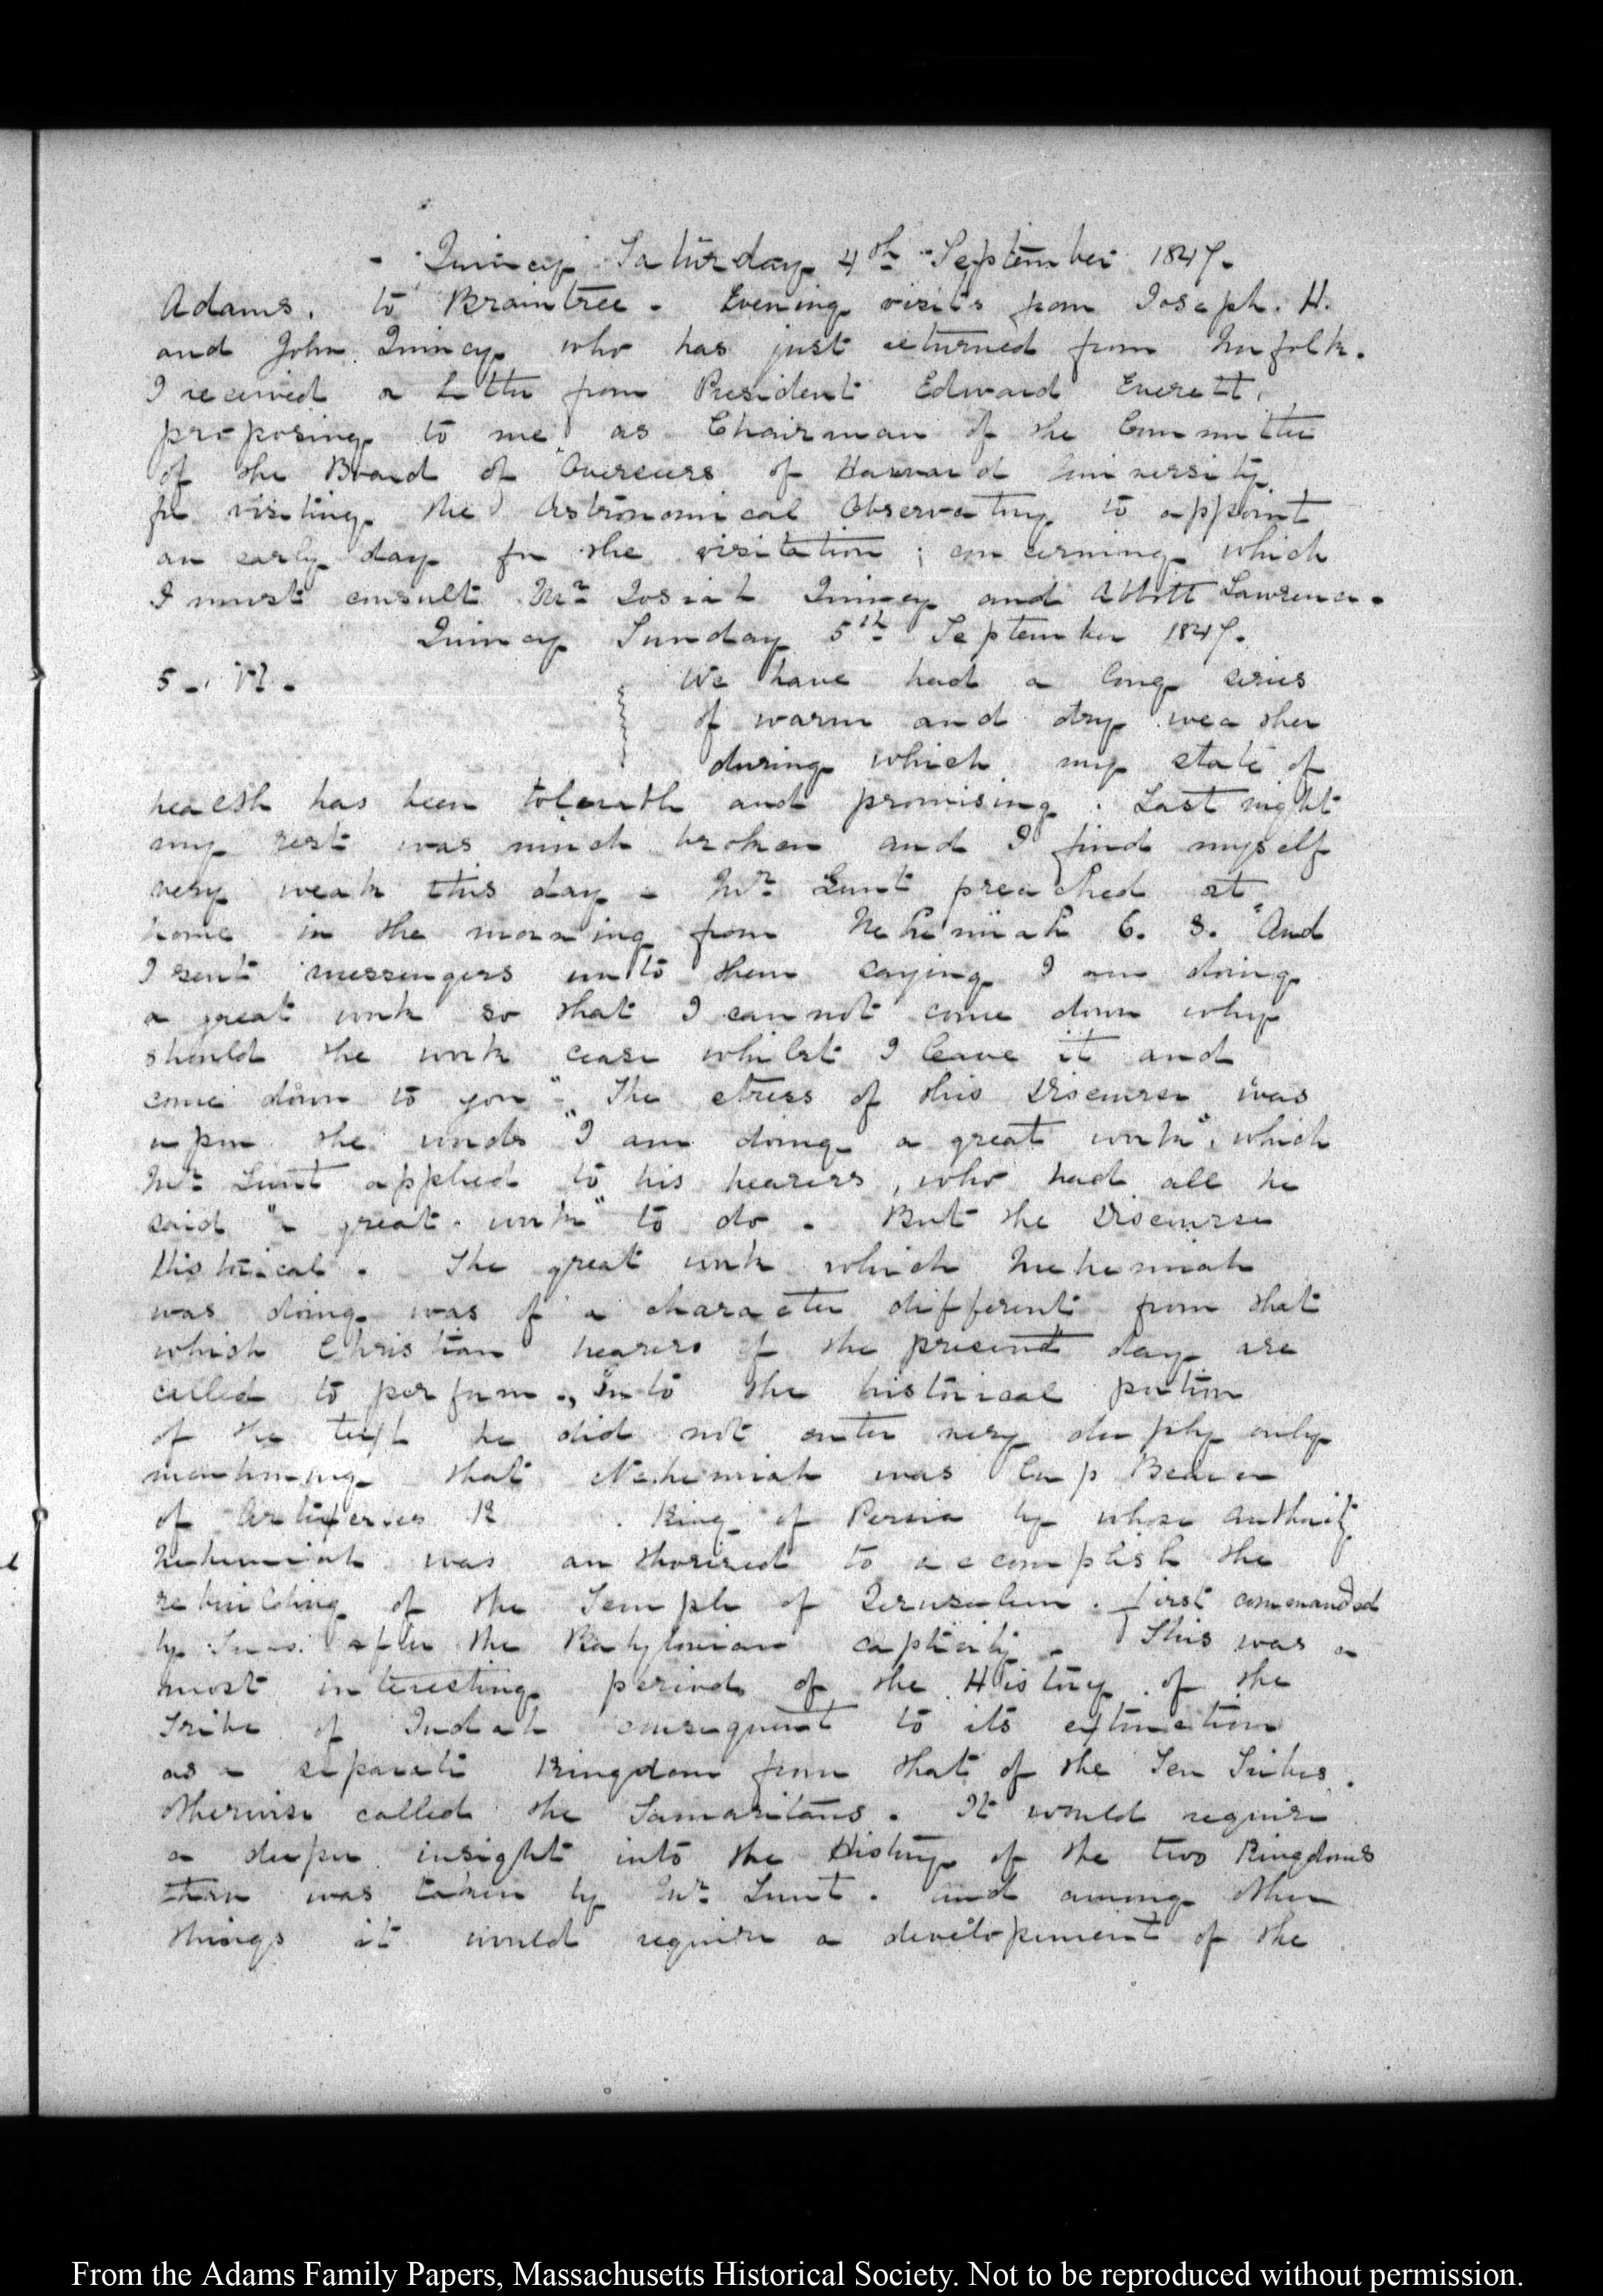 Quincy Saturday 4th September 1847.
Adams. to Braintree. Evening visits from Joseph. H.
and John Quincy who has just returned from Norfolk.
I received a Letter from President Edward Everett,
proposing to me as Chairman of the Committee
of the Board of Overseers of Harvard University
for visiting the Astronomical Observatory to appoint
an early day for the visitation; concerning which
I must consult Mr Josiah Quincy and Abbott Lawrence.
Quincy Sunday 5th September 1847.
5. VI. We have had a long series
of warm and dry weather
during which my state of
health has been tolerable and promising. Last night
my rest was much broken and I find myself
very weak this day. Mr Lunt preached at
home in the morning from Nehemiah 6. 3. "And
I sent messengers unto them saying I am doing
a great work so that I cannot come down why
should the work cease whilst I leave it and
come down to you". The stress of this Discourse was
upon the words "I am doing a great work", which
Mr Lunt applied to his hearers, who had all he
said "a great work" to do. But the Discourse
Historical. The great work which Nehemiah
was doing was of a character different from that
which Christian hearers of the present day are
called to perform., Into the historical portion
of the text he did not enter very deeply only
mentioning that Nehemiah was Cup Bearer
of Artaxerxes King of Persia by whose authority
Nehemiah was authorized to accomplish the
rebuilding of the Temple of Jerusalem. first commanded
by after the Babylonian captivity. This was a
most interesting period of the History of the
Tribe of Judah consequent to its extinction
as a separate Kingdom from that of the Ten Tribes.
otherwise called the Samaritans. It would require
a deeper insight into the History of the two Kingdoms
than was taken by Mr Lunt. and among other
things it would require a developement of the
From the Adams Family Papers, Massachusetts Historical Society. Not to be reproduced without permission.